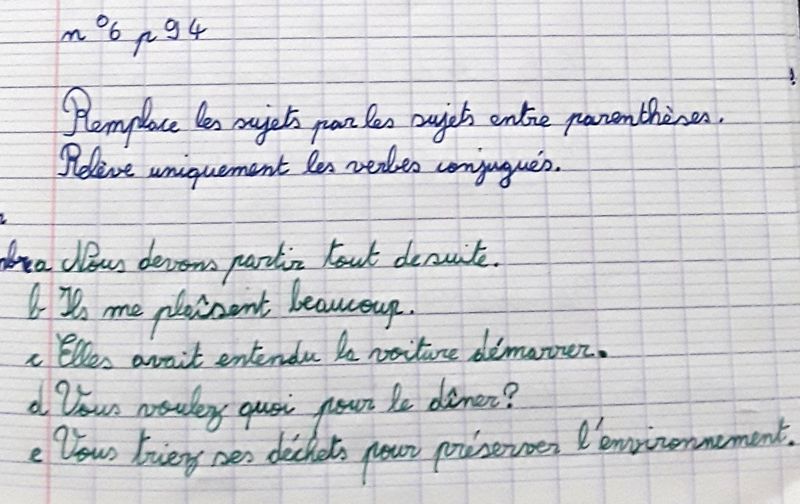 n°6 p94
Remplace les sujets par les sujets entre parenthèses.
Relève uniquement les verbes conjugués.
a Nous devons partir tout de suite.
b Ils me plaîsent beaucoup.
c Elles avait entendu la voiture démarrer.
d Vous voulez quoi pour le dîner?
e Vous triez ses déchets pour préserver l'environnement.